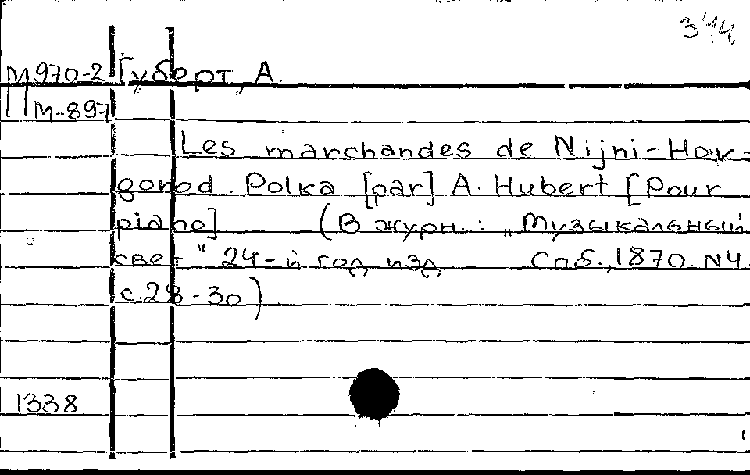 344
М970-2 Губерт, А.
М-897
Les marchandes de Nijni-Hov-
gorod. Polka [par] A. Hubert [Pour
piano] (В журн.: „Музыкальный
свет" 24-й год изд. Спб., 1870. N4
с.28-30)
1338